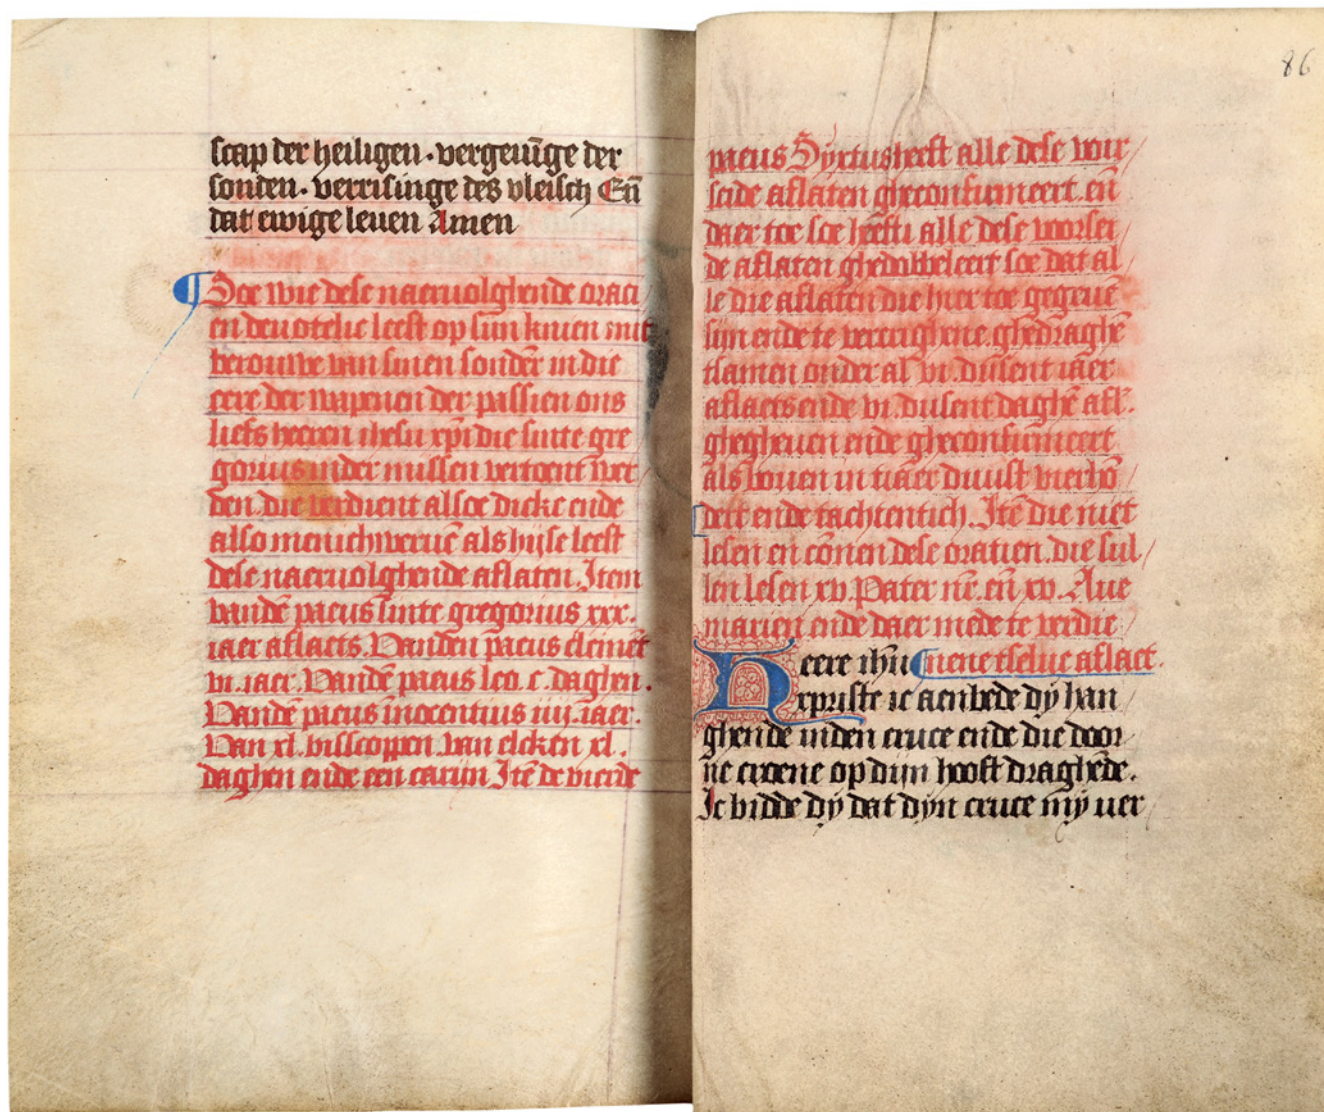 scap der heiligen · vergeuīge der
sonden · verrisinge des vleisch Eñ
dat ewige leuen Amen
Soe wie dese naeruolghende oraci
en deuotelic leest op sijn knien mit
berouwe van sinen sonden in die
eere der wapenen der passien ons
liefs heeren ihesu xpi die sinte gre
gorius in der missen vertoent wer
den. die verdient alsoe dicke ende
also menichweruē als hijse leest
dese naeruolghende aflaten. Item
vandē paeus sinte gregorius xxx.
iaer aflaets. Vanden paeus clemēt
vi. iaer. Vandē paeus leo. c. daghen.
Vandē paeus inocentius iiij. iaer.
Van xl. bisscoppen van elcken xl.
daghen ende een carijn Itē de vierde
86
paeus Syxtus heeft alle dese voir
seide aflaten gheconfirmeert. eñ
daer toe soe heefti alle dese voorsei
de aflaten ghedubbeleert soe dat al
le die aflaten die hier toe gegeuē
sijn ende te vercrighene. ghedraghē
tsamen onder al vi. dusent iaer
aflaets ende vi. dusent daghē afl.
ghegheuen ende gheconfirmeert
als bouen in tiaer duust vierhō
dert ende tachtentich. Itē die niet
lesen en cōnen dese oratien. die sul
len lesen xv. Pater nr̄. eñ xv. Aue
marien ende daer mede te verdie
Heere ihū nene tselue aflaet.
xpriste ic aenbede dy han
ghende inden cruce ende die door
ne croene op dijn hooft draghēde.
Ic bidde dy dat dijn cruce my ver